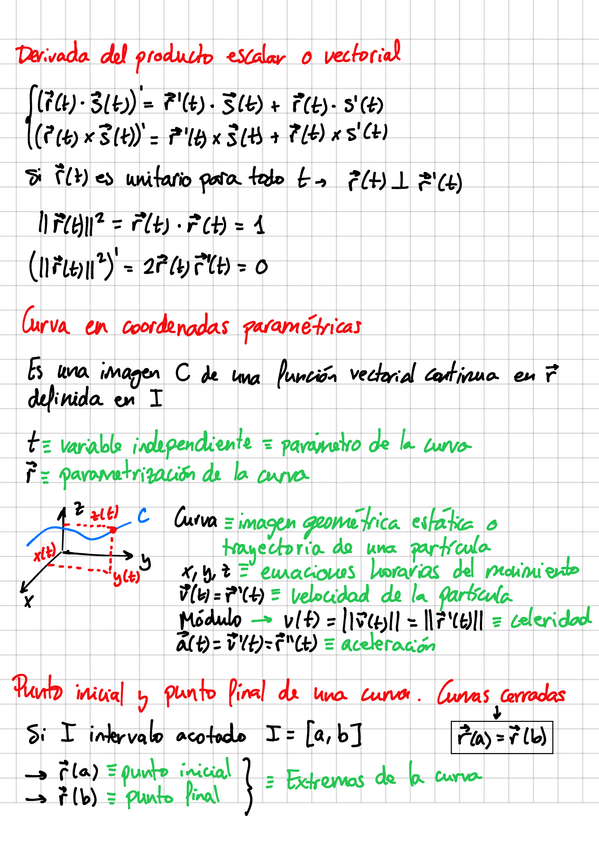 Derivada del producto escalar o vectorial
(r⃗(t) · s⃗(t))' = r⃗'(t) · s⃗(t) + r⃗(t) · s'(t)
(r⃗(t) × s⃗(t))' = r⃗'(t) × s⃗(t) + r⃗(t) × s'(t)
Si r⃗(t) es unitario para todo t → r⃗(t) ⊥ r⃗'(t)
||r⃗(t)||² = r⃗(t) · r⃗(t) = 1
(||r⃗(t)||²)' = 2r⃗(t) r⃗'(t) = 0
Curva en coordenadas paramétricas
Es una imagen C de una función vectorial continua en r⃗
definida en I
t ≡ variable independiente ≡ parámetro de la curva
r⃗ ≡ parametrización de la curva
z z(t) C
x(t) y
y(t)
x
Curva ≡ imagen geométrica estática o
trayectoria de una partícula
x, y, z ≡ ecuaciones horarias del movimiento
v⃗(t) = r⃗'(t) ≡ velocidad de la partícula
Módulo → v(t) = ||v⃗(t)|| = ||r⃗'(t)|| ≡ celeridad
a⃗(t) = v⃗'(t) = r⃗''(t) ≡ aceleración
Punto inicial y punto final de una curva. Curvas cerradas
↓
Si I intervalo acotado I = [a, b] r⃗(a) = r⃗(b)
→ r⃗(a) ≡ punto inicial
→ r⃗(b) ≡ punto final
} ≡ Extremos de la curva